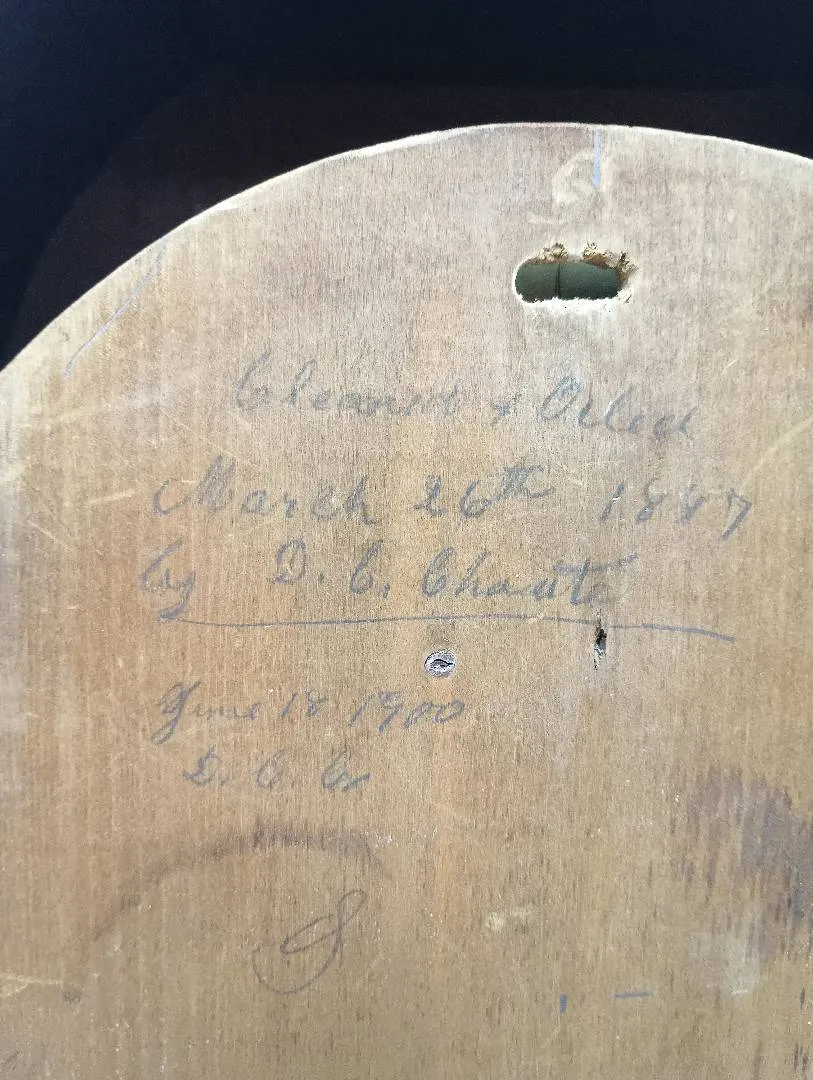 Cleaned & Oiled
March 26th 1887
by D. C. Choate
June 18 1900
D. C. C.